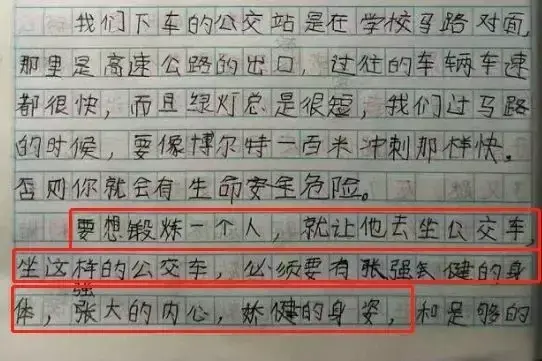 我们下车的公交站是在学校马路对面,
那里是高速公路的出口，过往的车辆车速
都很快，而且绿灯总是很短，我们过马路
的时候，要像博尔特一百米冲刺那样快。
否则你就会有生命安全危险。
要想锻炼一个人，就让他去坐公交车,
坐这样的公交车，必须要有强健的身
强
体，张大的内心，矫健的身姿，和足够的